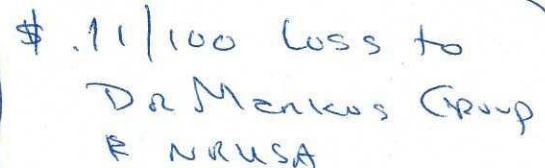 $ .11/100 Loss to
Dr Menkus Group
& NRUSA